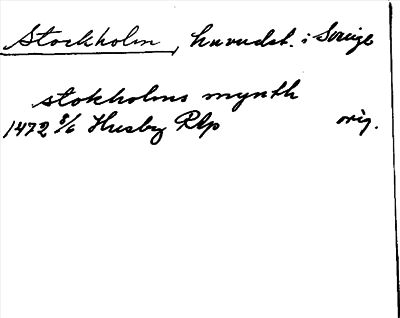 Stockholm, huvudst. i Sverige
stokholms mynth
1472 8/6 Husby Rlp orig.